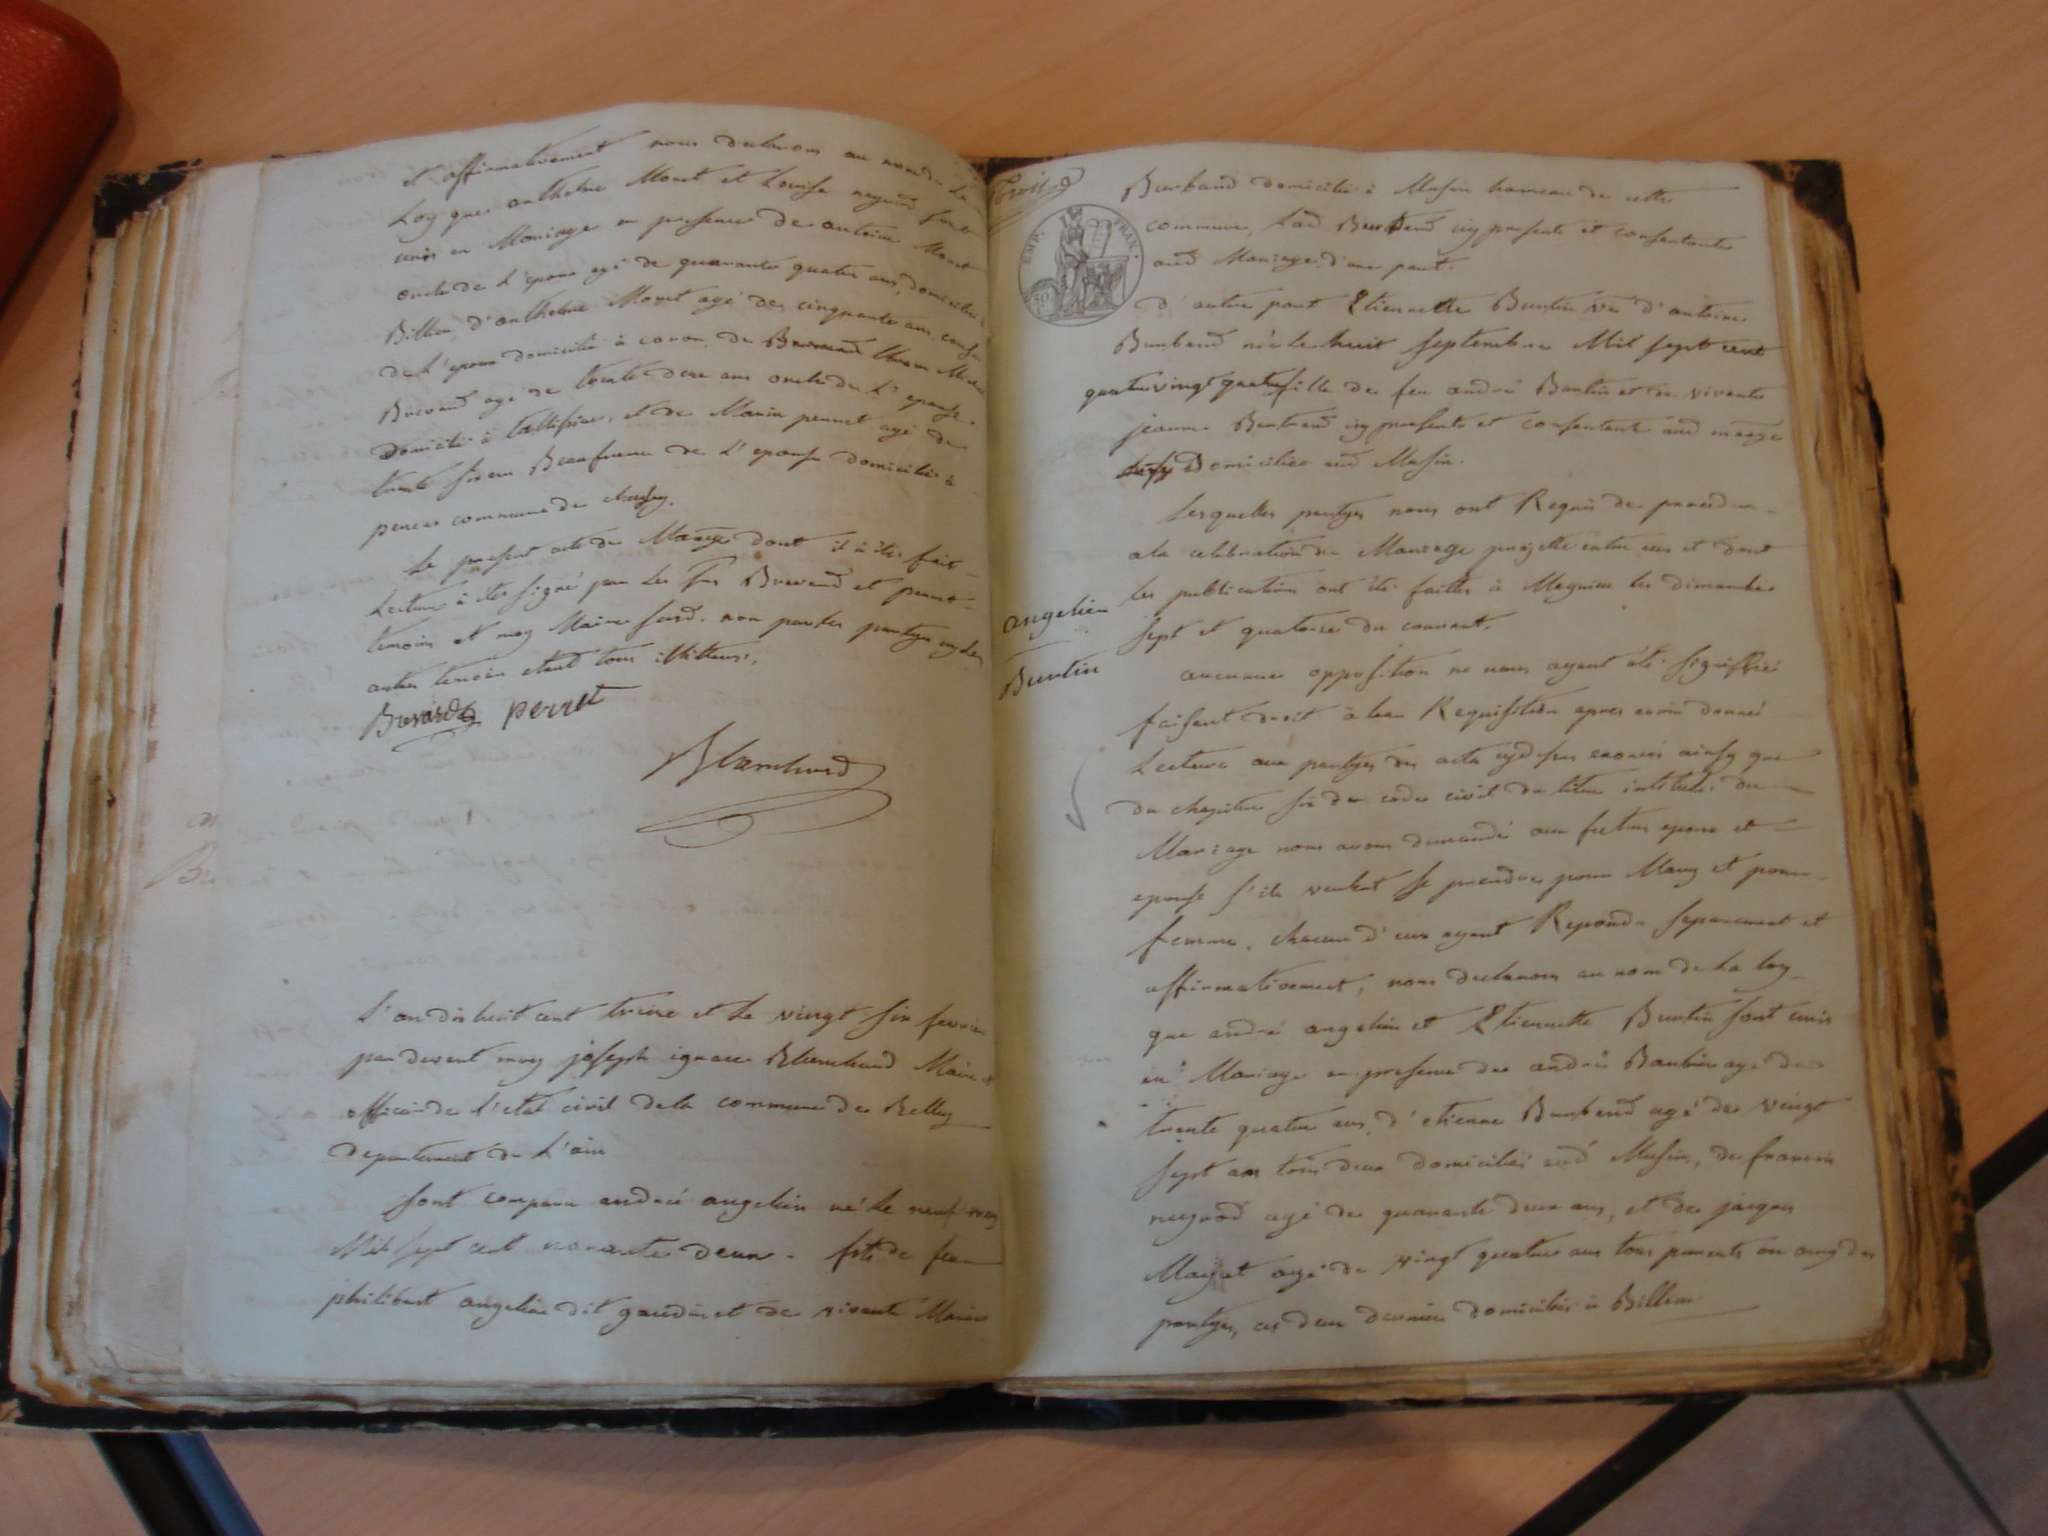 et affirmativement nous declarons au nom de La
Loy que anthelme Moret et Louise neyroud sont
unis en Mariage en presence de antoine Moret
oncle de L'epoux agé de quarante quatre ans, domicilié à
Billieu, d'anthelme Moret agé de cinquante ans, cousin
de L'epoux domicilié à coron, de
agé de trente deux ans oncle de L'epouse
Domicilié à , et de Marin perret agé de
trente six ans Beaufrere de L'epouse domicilié à
commune de
Le present acte de Mariage dont il à été fait
Lecture à été signé par Les Srs et perret
temoins et moy Maire susd. non par les partyes ny les
autres temoins etant tous illitteres.
perret
Blanchard
L'an dix huit cent treize et Le vingt six fevrier
par devant moy joseph ignace Blanchard Maire et
officier de L'etat civil de la commune de Belley
departement de L'ain
Sont comparu andré angelin né Le neuf may
Mil sept cent nonante deux - fils de feu
philibert angelin dit gaudin et de vivante Marie
Trois
EMP. FRAN.
50
Burbaud domiciliée à Musin hameau de cette
commune, Lad Burbaud icy presente et consentante
aud Mariage, d'une part.
d'autre part Etiennette Burtin ve d'antoine
Burbaud née Le huit septembre Mil sept cent
quatrevingt quatre fille de feu andré Burtin et de vivante
jeanne icy presente et consentant aud mariage
Domiciliée aud Musin.
Lesquelles partyes nous ont Requis de proceder
a la celebration du Mariage projetté entre eux et dont
les publications ont été faittes à Magnieu les dimanches
sept et quatorze du courant.
angelin
Burtin
aucunne opposition ne nous ayant été signiffiée
faisant droit à leur Requisition apres avoir donné
Lecture aux partyes des actes cydessus enoncés ainsy que
du chapitre six du code civil du titre intitulé du
Mariage nous avons demandé aux futurs epoux et
epouse s'ils veulent se prendre pour Mary et pour
femme. chacun d'eux ayant Repondu separement et
affirmativement, nous declarons au nom de La loy
que andré angelin et Etiennette Burtin sont unis
en Mariage en presence de andré Barbier agé de
trente quatre ans, d'etienne Burbaud agé de vingt
sept ans tous deux domiciliés aud Musin, de francois
neyroud agé de quarante deux ans, et de jacques
agé de vingt quatre ans tous parents ou amy des
partyes, ces deux derniers domiciliés à Billieu